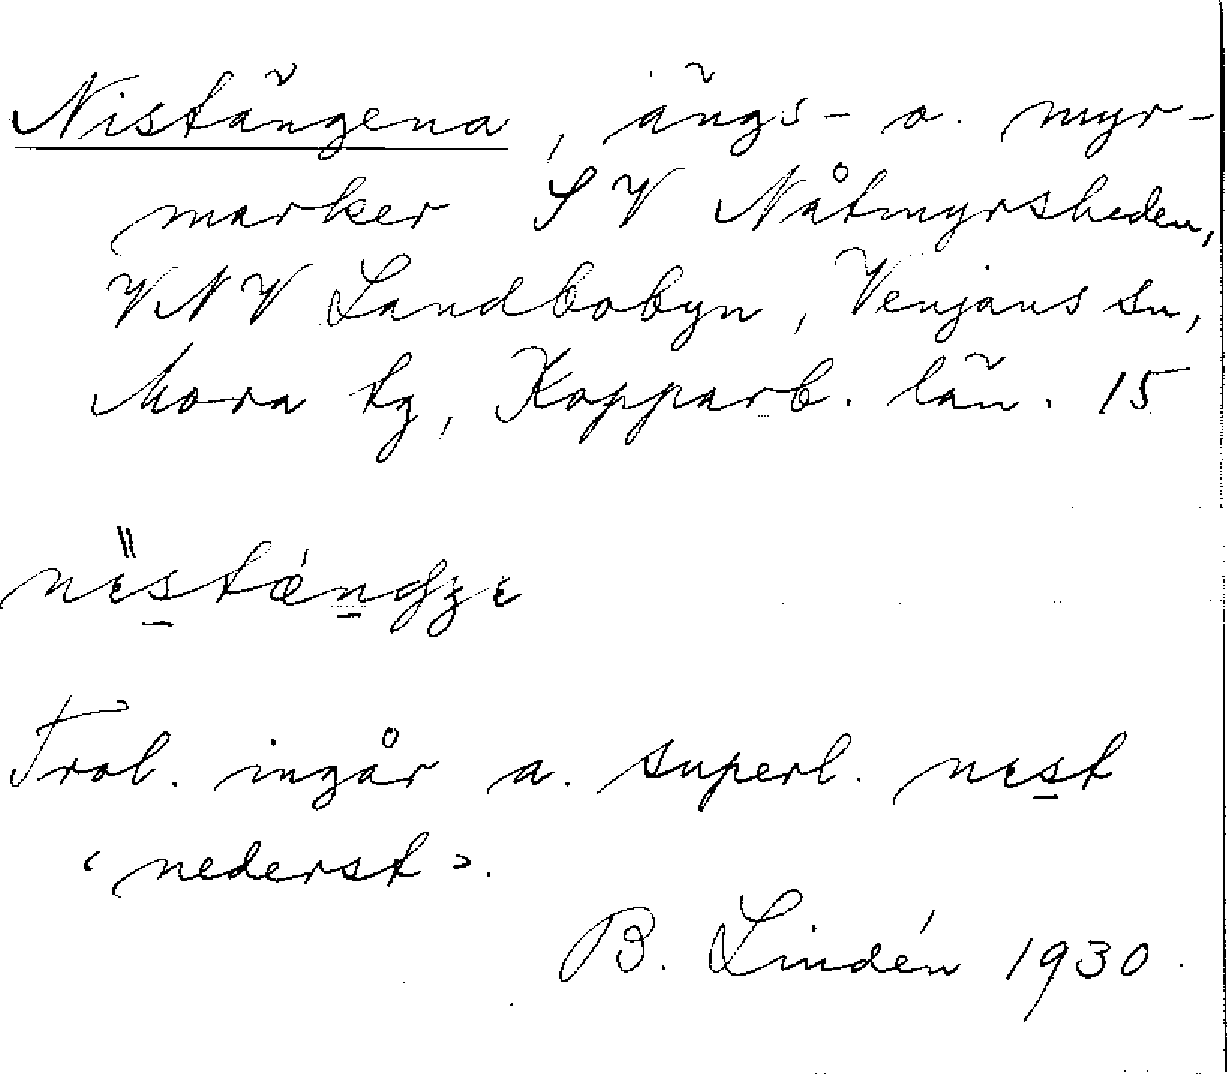 Nistängena, ängs- o. myr-
marker SV Nåtmyrsheden,
VNV Landbobyn, Venjans sn,
Mora tg, Kopparb. län. 15
Trol. ingår a. superl. nɪst
‹nederst›.
B. Lindén 1930.